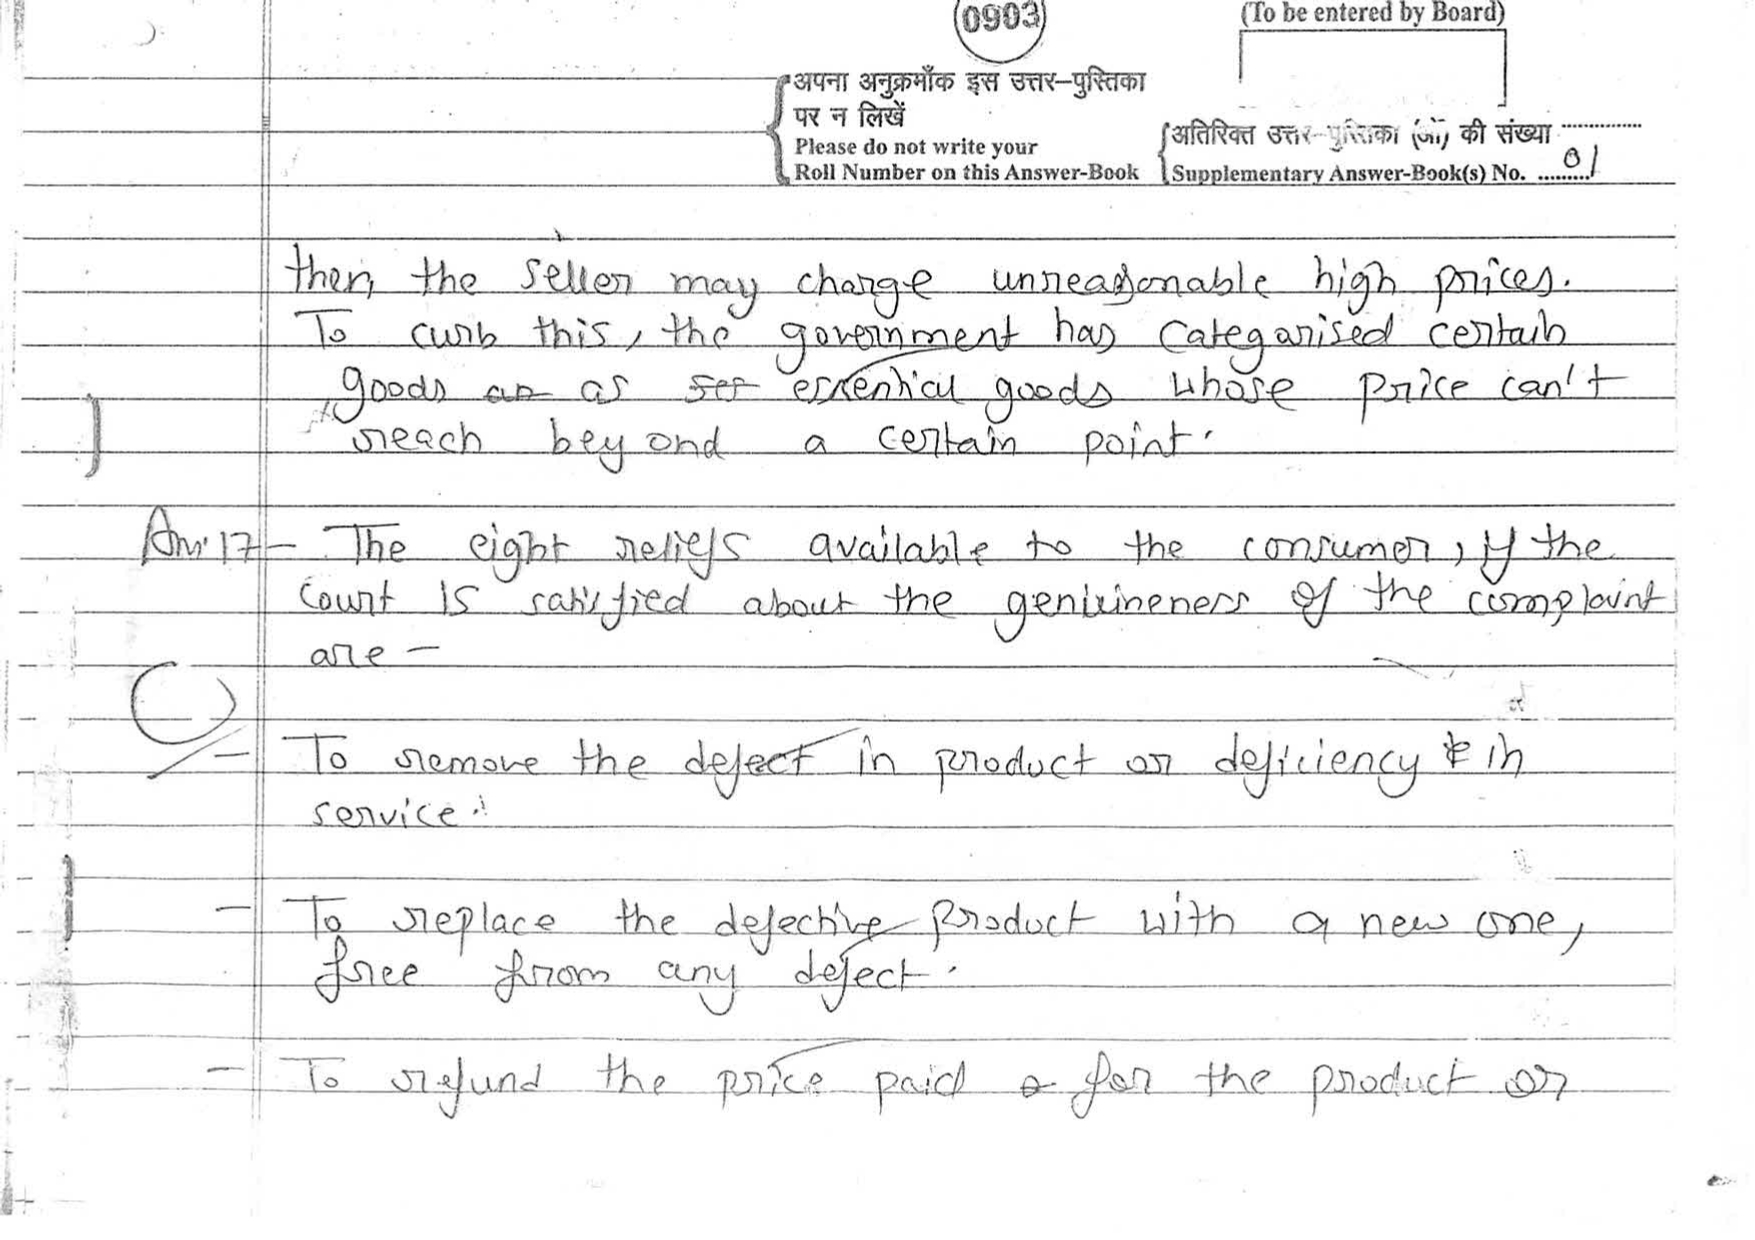 0903
(To be entered by Board)
अपना अनुक्रमाँक इस उत्तर-पुस्तिका
पर न लिखें
Please do not write your
Roll Number on this Answer-Book
अतिरिक्त उत्तर-पुस्तिका (ओं) की संख्या ..............
Supplementary Answer-Book(s) No. ......... 01
then, the seller may charge unreasonable high prices.
To curb this, the government has categorised certain
goods as essential goods whose price can't
reach beyond a certain point.
Ans 17 - The eight reliefs available to the consumer, if the
court is satisfied about the genuineness of the complaint
are -
- To remove the defect in product or deficiency in
service.
- To replace the defective product with a new one,
free from any defect.
- To refund the price paid for the product or